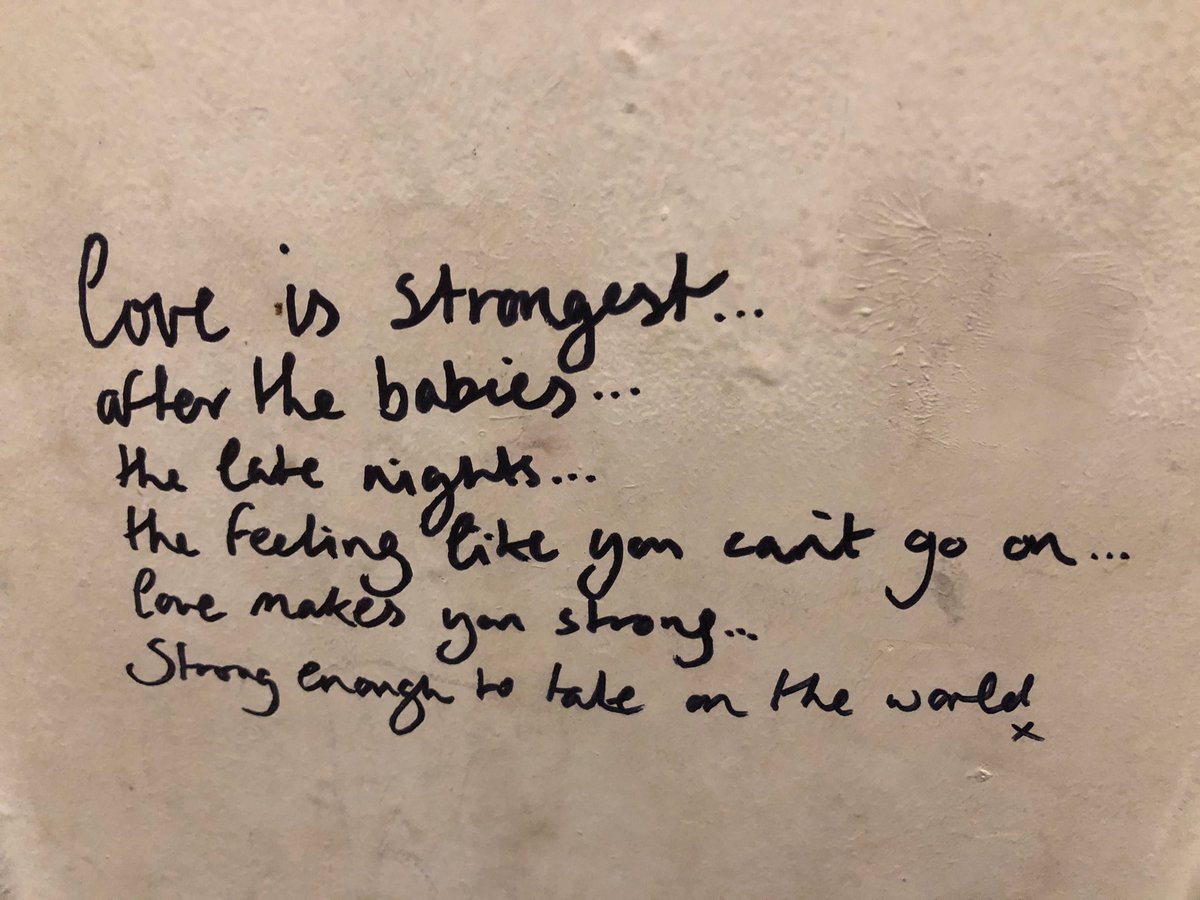 love is strongest...
after the babies...
the late nights...
the feeling like you can't go on...
love makes you strong...
Strong enough to take on the world
x